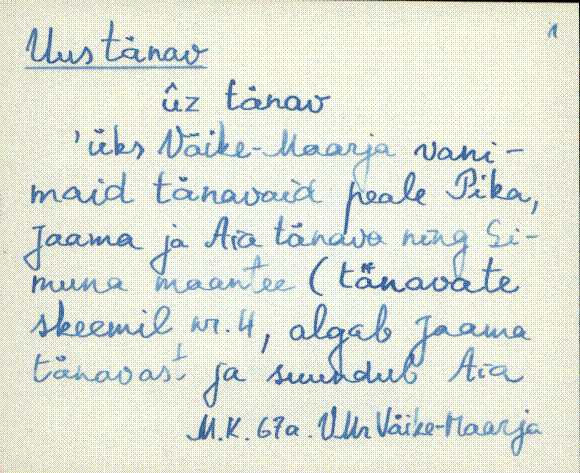 1
Uus tänav
ûz tänav
'üks Väike-Maarja vani-
maid tänavaid peale Pika,
Jaama ja Aia tänava ning Si-
muna maantee (tänavate
skeemil nr. 4, algab Jaama
tänavast ja suundub Aia
M.K. 67a. VMr Väike-Maarja